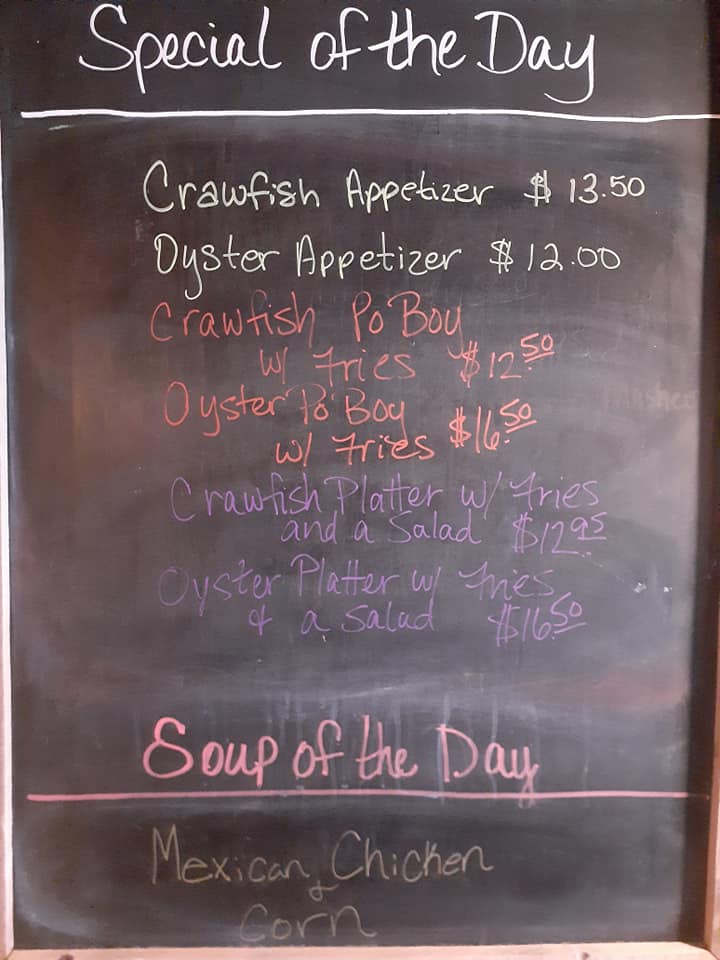 Special of the Day
Crawfish Appetizer $ 13.50
Oyster Appetizer $ 12.00
Crawfish Po'Boy
w/ Fries $12.50
Oyster Po' Boy
w/ Fries $16.50
Crawfish Platter w/ Fries
and a Salad $12.95
Oyster Platter w/ Fries
& a Salad $16.50
Soup of the Day
Mexican Chicken
&
Corn